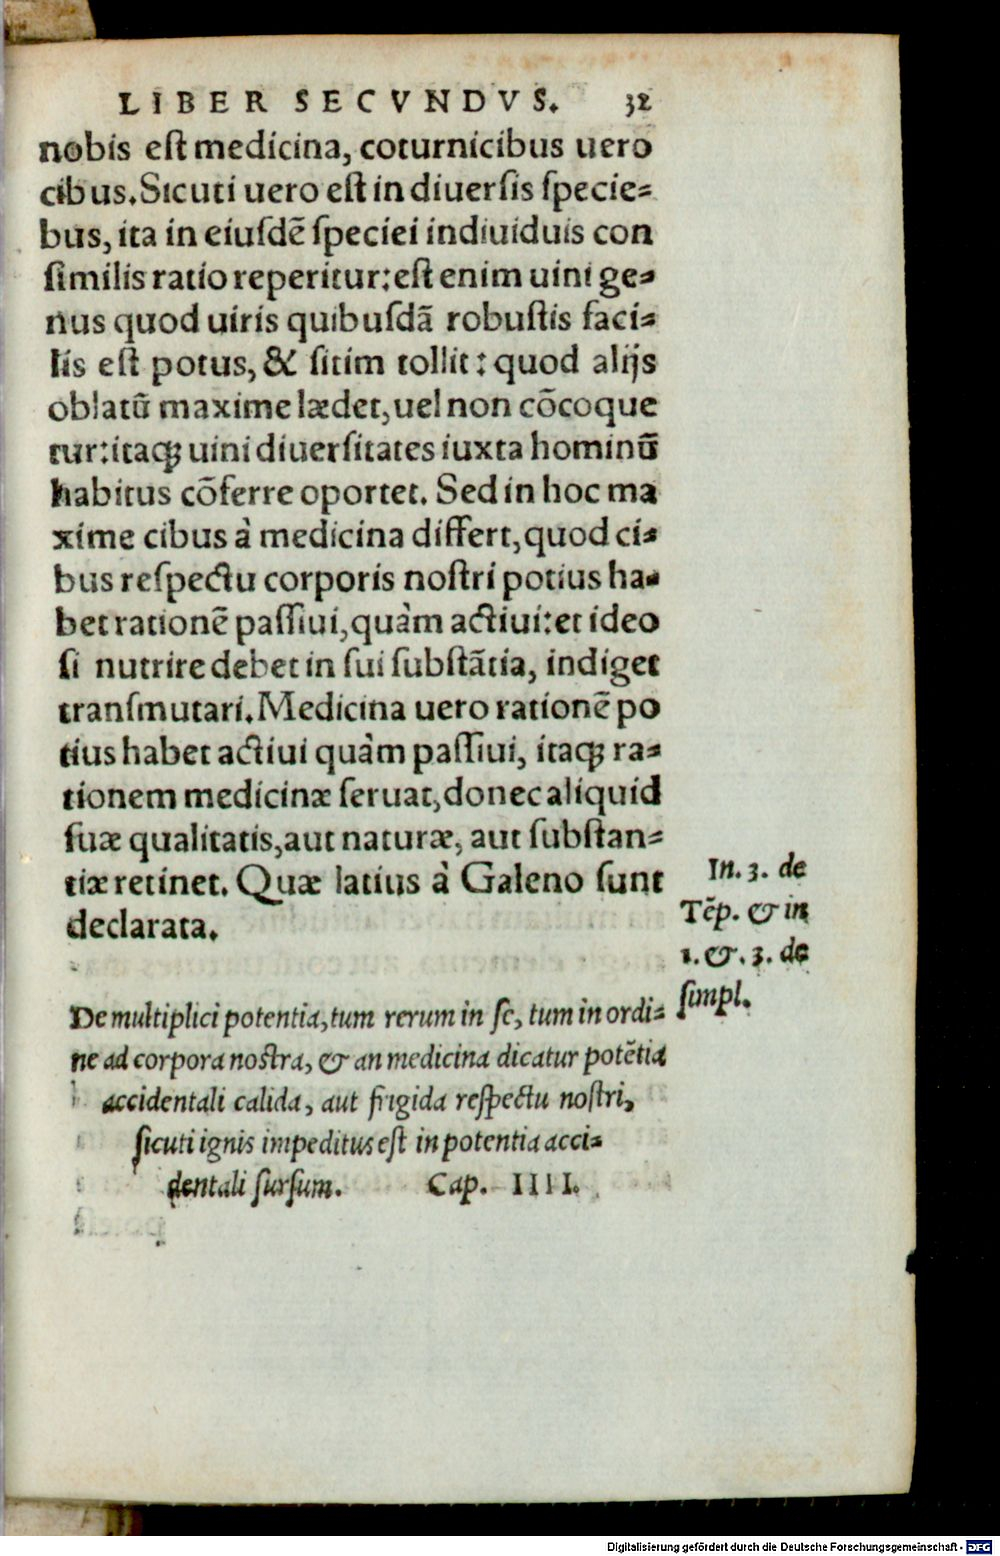 LIBER SECVNDVS. 32
nobis eſt medicina, coturnicibus uero
cibus. Sicuti uero eſt in diuerſis ſpecie=
bus, ita in eiuſdē ſpeciei indiuiduis con
ſimilis ratio reperitur: eſt enim uini ge=
nus quod uiris quibuſdā robuſtis faci=
lis eſt potus, & ſitim tollit: quod alijs
oblatū maxime lædet, uel non cōcoque
tur: itaqꝫ uini diuerſitates iuxta hominū
habitus cōferre oportet. Sed in hoc ma
xime cibus à medicina differt, quod ci=
bus reſpectu corporis noſtri potius ha=
bet rationē paſſiui, quàm actiui: et ideo
ſi nutrire debet in ſui ſubſtātia, indiget
tranſmutari. Medicina uero rationē po
tius habet actiui quàm paſſiui, itaqꝫ ra=
tionem medicinæ ſeruat, donec aliquid
ſuæ qualitatis, aut naturæ, aut ſubſtan=
tiæ retinet. Quæ latius à Galeno ſunt
declarata.
In. 3. de
Tēp. & in
1. &. 3. de
ſimpl.
De multiplici potentia, tum rerum in ſe, tum in ordi=
ne ad corpora noſtra, & an medicina dicatur potētia
accidentali calida, aut frigida reſpectu noſtri,
ſicuti ignis impeditus eſt in potentia acci=
dentali ſurſum. Cap. IIII.
Digitalisierung gefördert durch die Deutsche Forschungsgemeinschaft - DFG